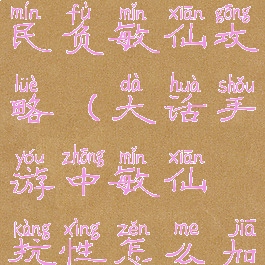 mín fù mǐn xiān gōng
民负敏仙攻
lüè dà huà shǒu
略（大话手
yóu zhōng mǐn xiān
游中敏仙
kàng xìng zěn me jiā
抗性怎么加